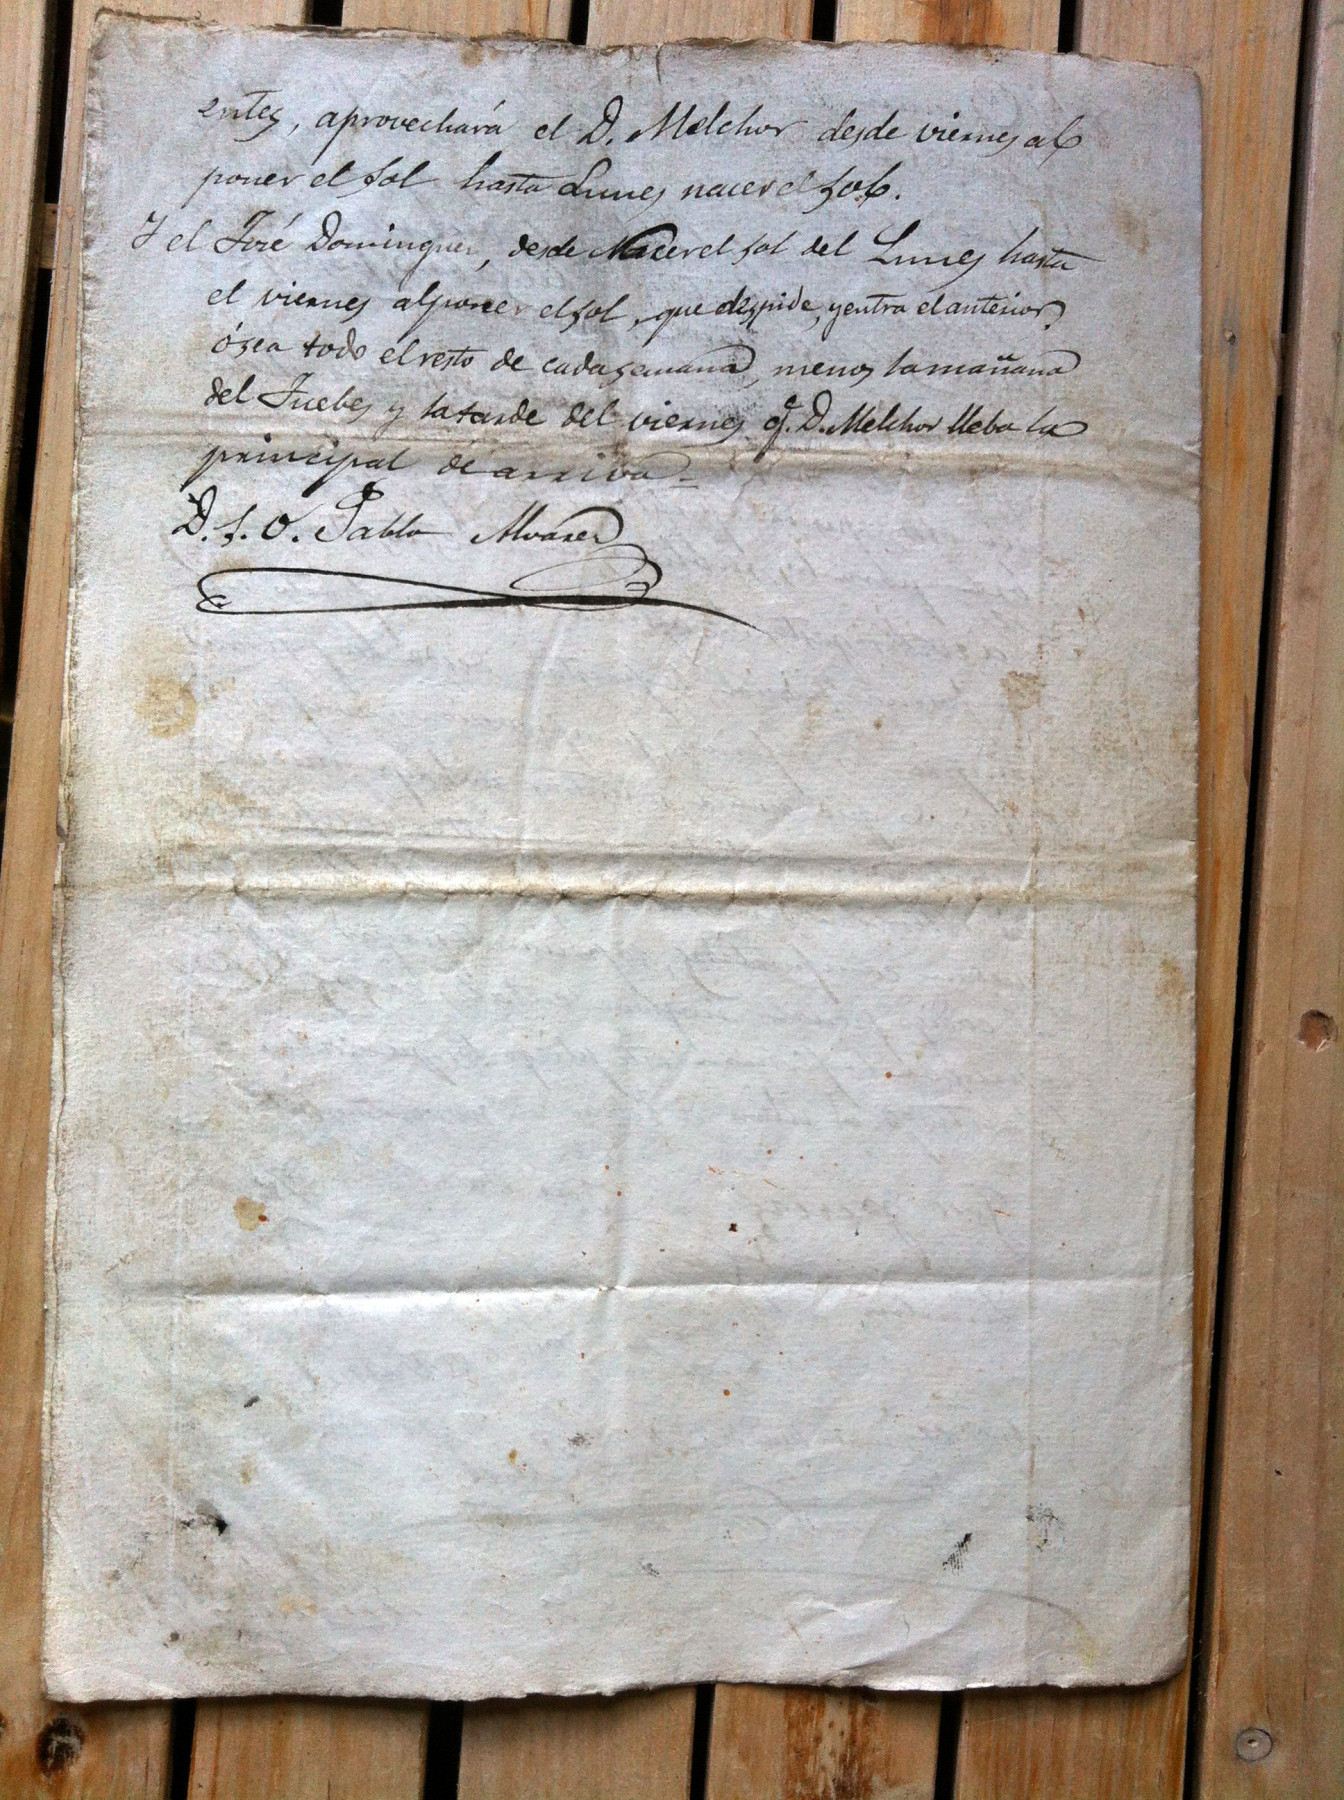 entes, aprovechará el D. Melchor desde viernes al
poner el sol hasta Lunes nacer el sol.
Y el José Dominguez, desde Nacer el sol del Lunes hasta
el viernes al poner el sol, que despide, y entra el anterior,
ósea todo el resto de cada semana, menos la mañana
del Juebes y la tarde del viernes q.e D. Melchor lleba la
principal de arriva =
D. s. O. Pablo Alvarez